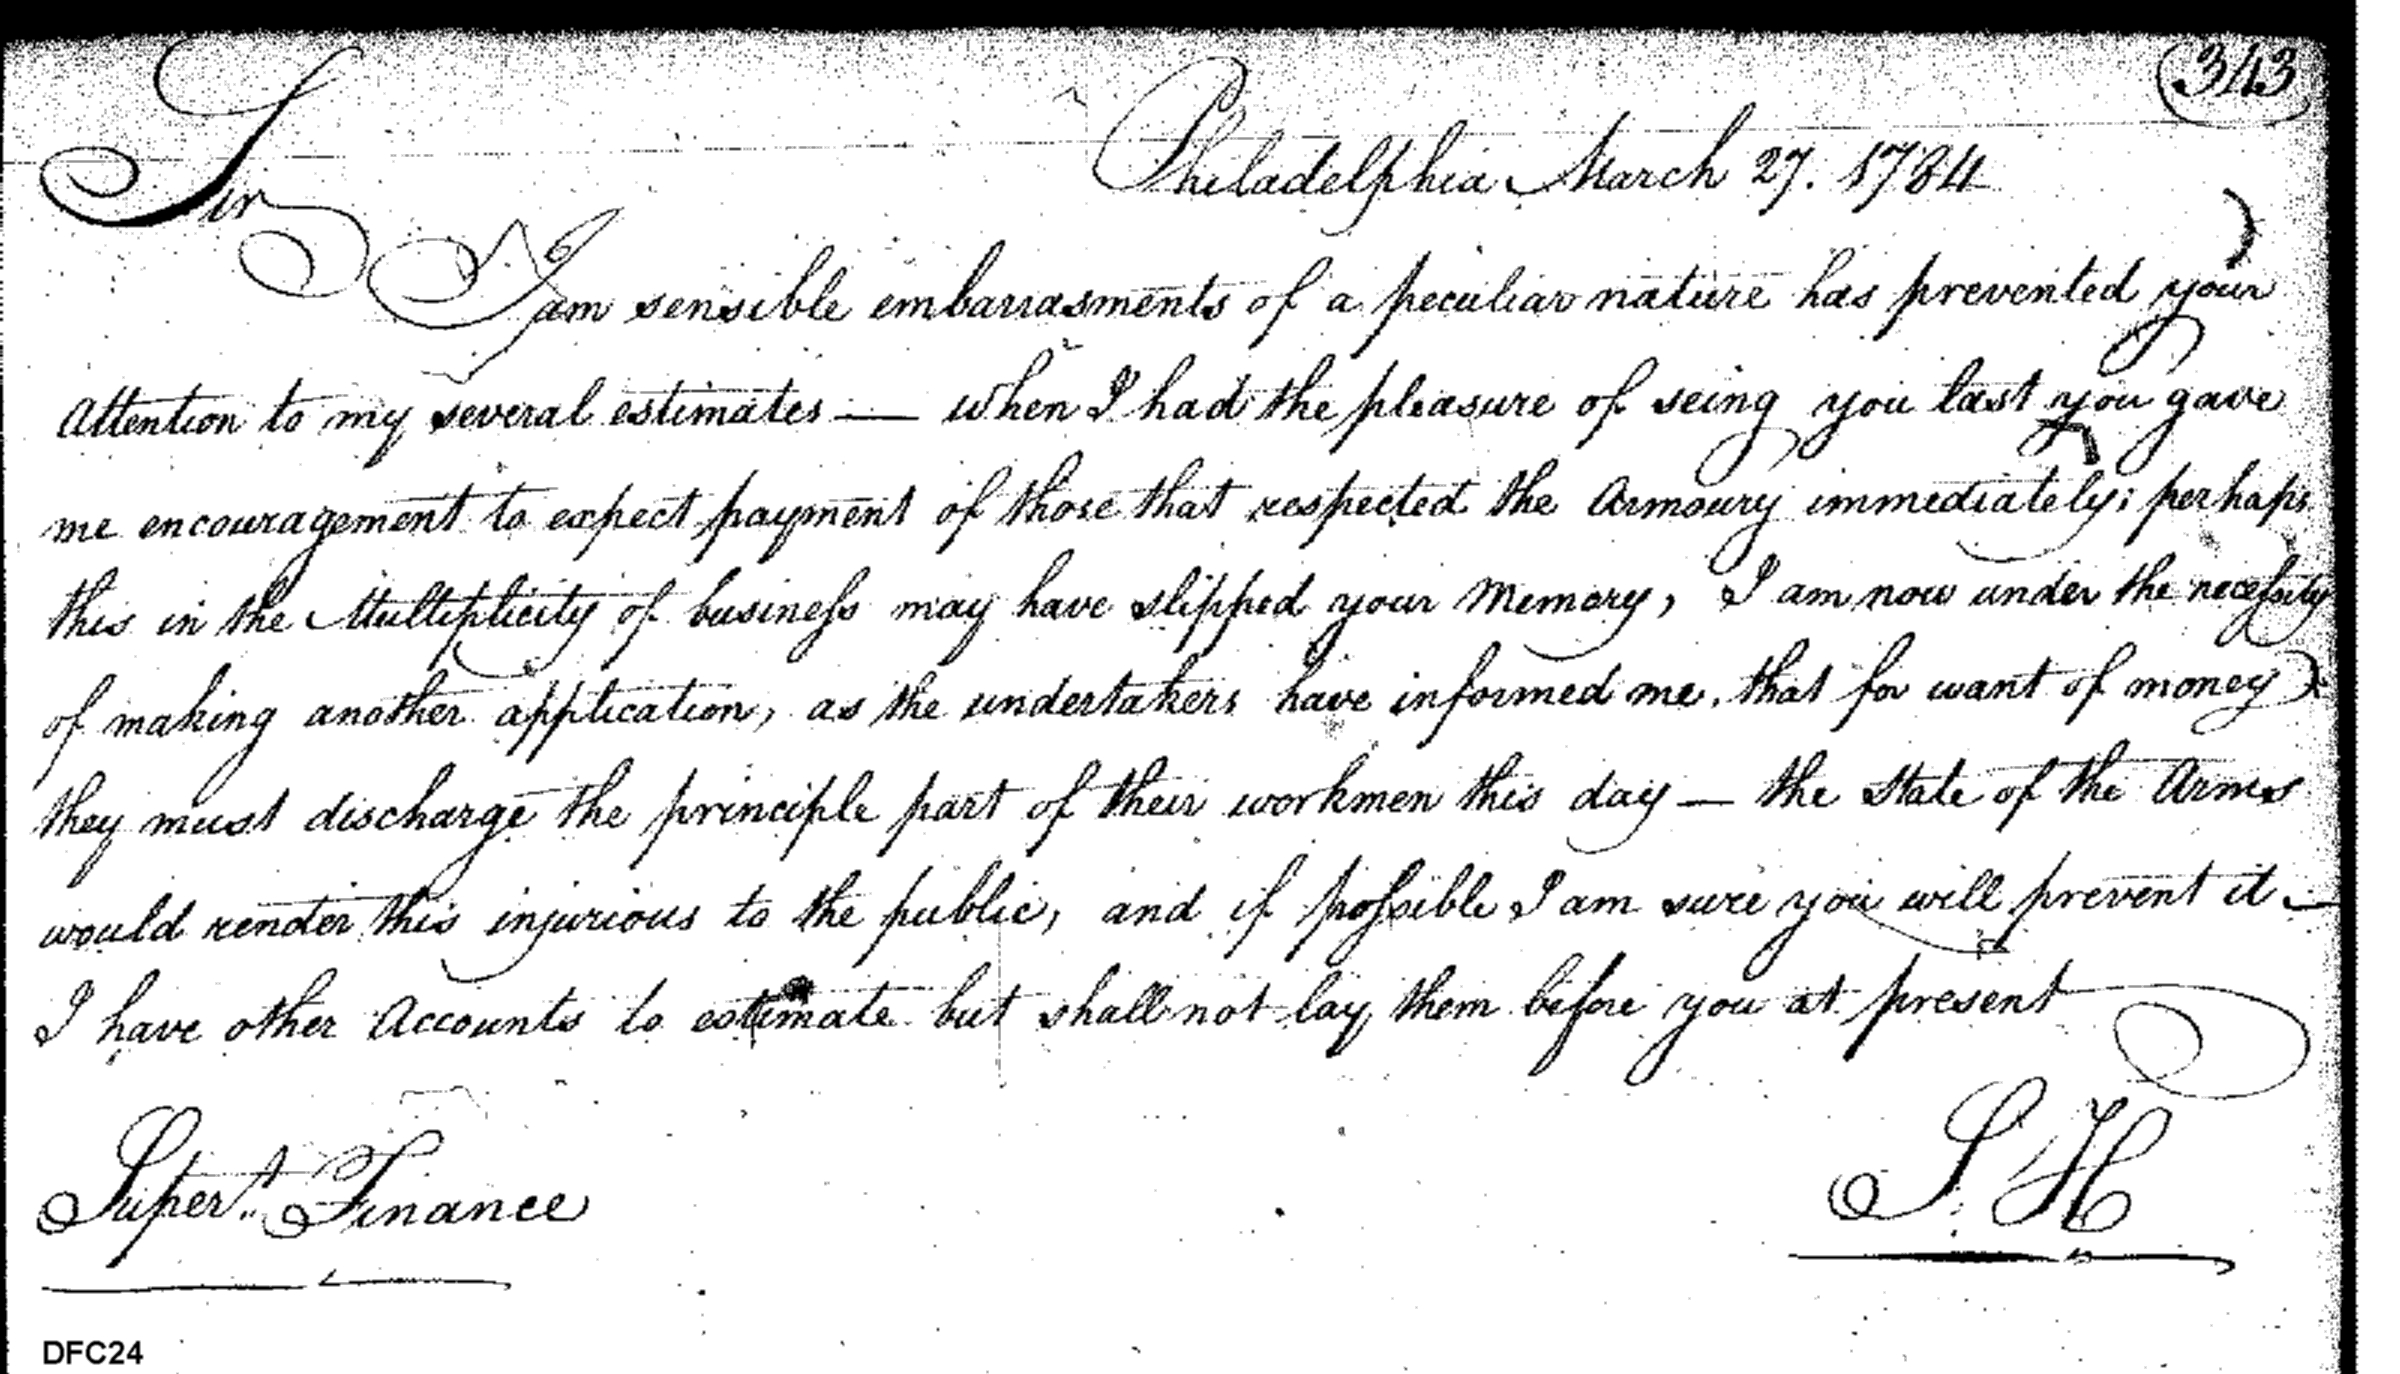 343
Philadelphia March 27. 1784
Sir
I am sensible embarrasments of a peculiar nature has prevented your
Attention to my several estimates — when I had the pleasure of seing you last you gave
me encouragement to expect payment of those that respected the Armoury immediately; perhaps
this in the Multiplicity of business may have slipped your Memory, I am now under the necessity
of making another application, as the undertakers have informed me, that for want of money
they must discharge the principle part of their workmen this day — the State of the Arms
would render this injurious to the public, and if possible I am sure you will prevent it —
I have other Accounts to estimate but shall not lay them before you at present
Supert. Finance
S. H
DFC24